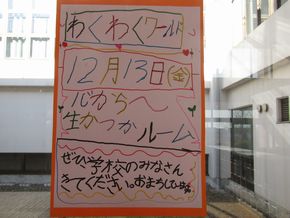 わくわくワールド
12月13日(金)
心から〜
生かつかルーム
ぜひ学校のみなさん
きてください。おまちしてます